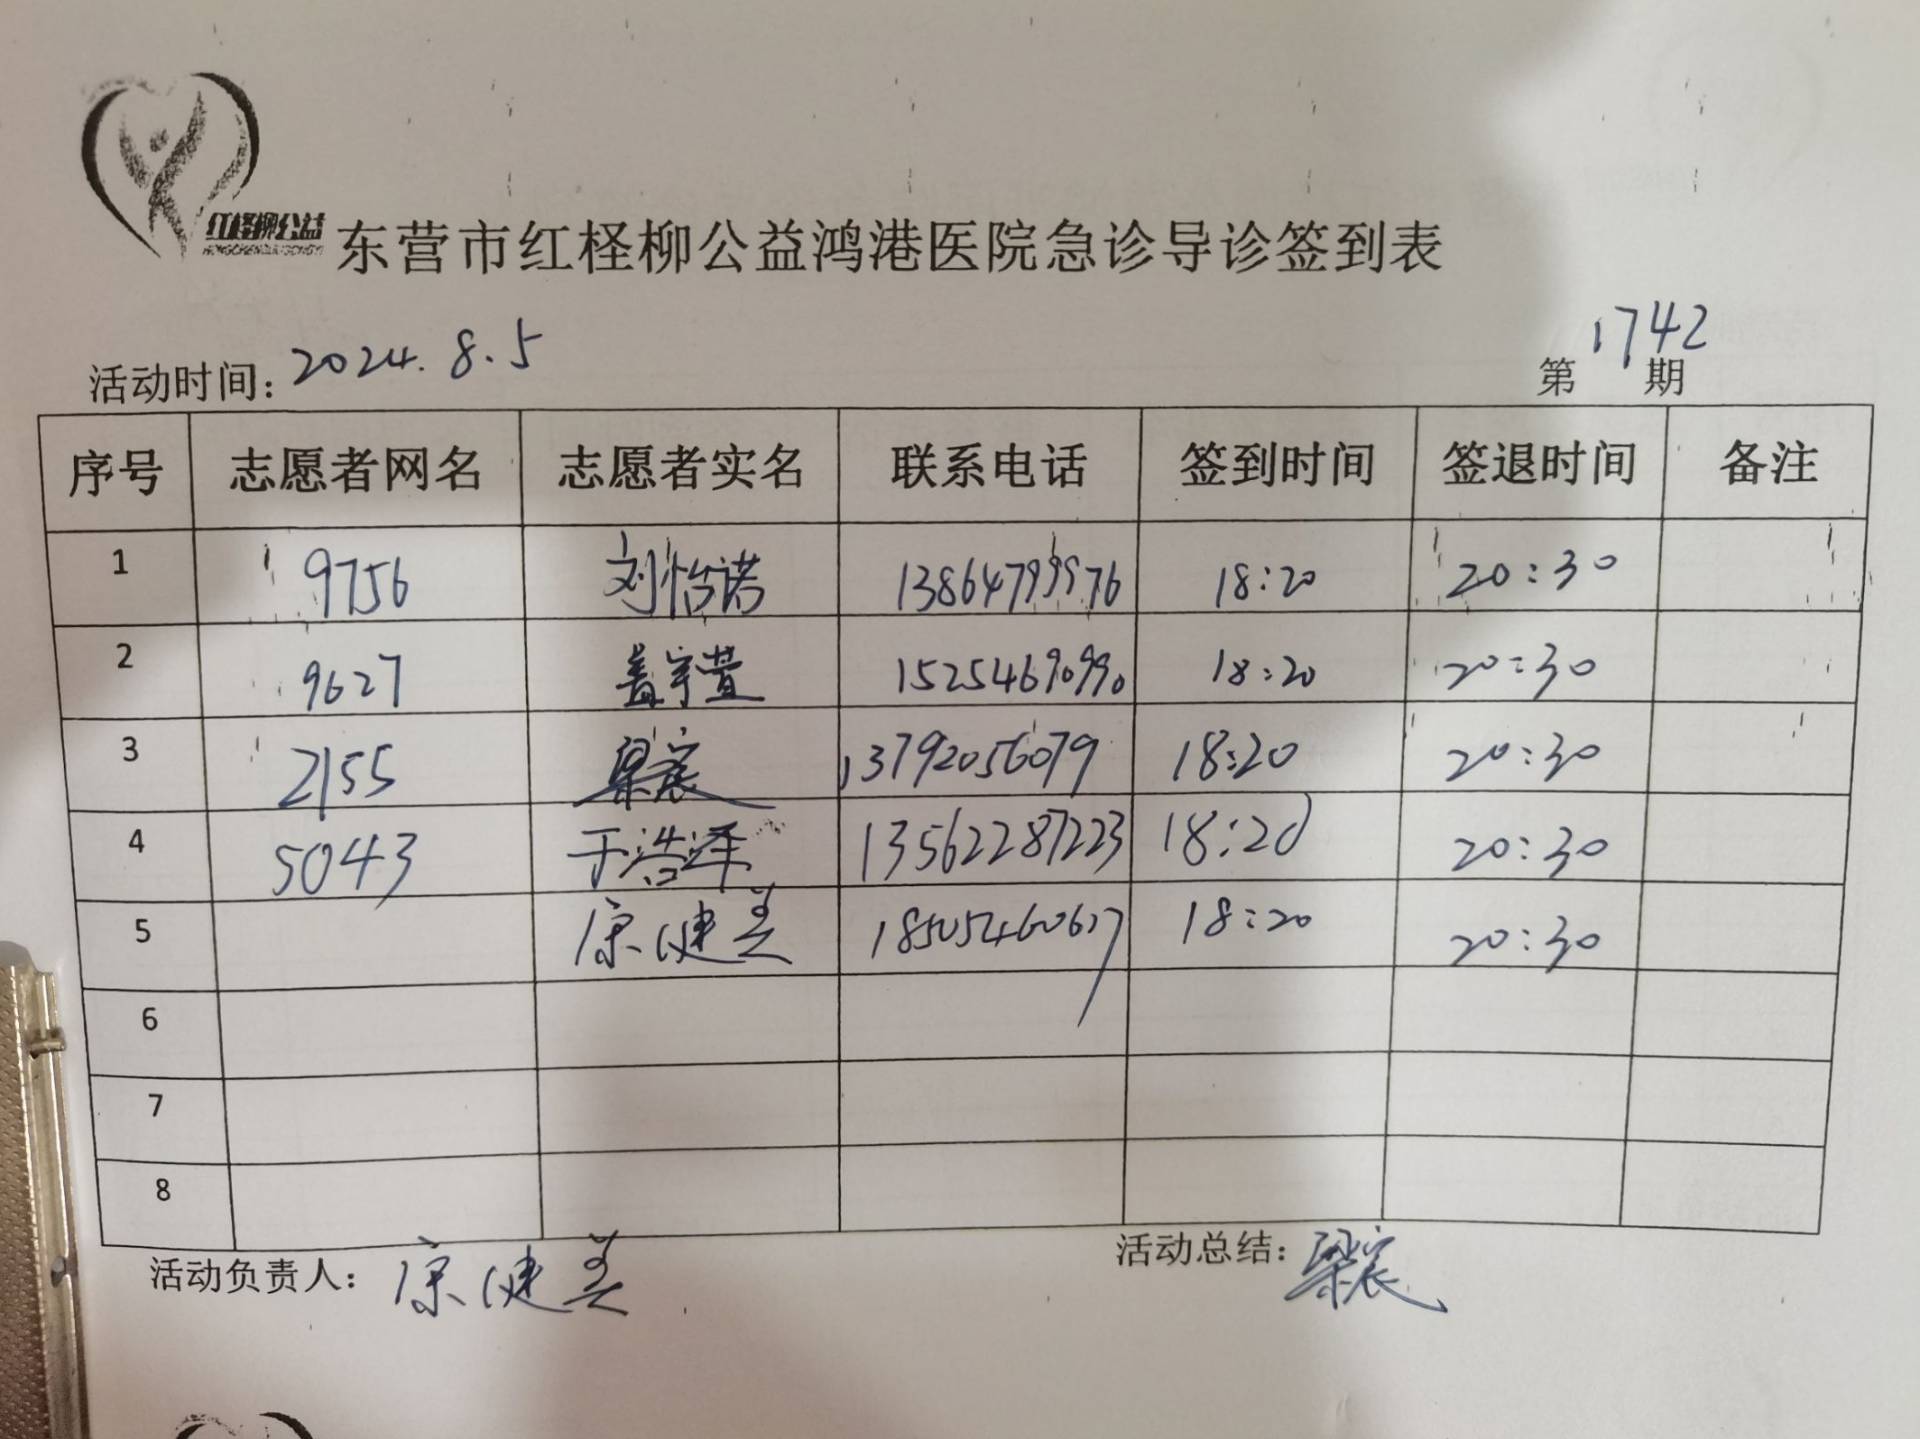 红柽柳公益
东营市红柽柳公益鸿港医院急诊导诊签到表
活动时间：2024.8.5 第1742期
序号 志愿者网名 志愿者实名 联系电话 签到时间 签退时间 备注
1 9756 刘怡诺 13864799976 18:20 20:30
2 9627 盖宇萱 15254690990 18:20 20:30
3 2155 梁宸 13792056079 18:20 20:30
4 5043 于浩泽 13562287223 18:20 20:30
5 康健美 18505460617 18:20 20:30
6
7
8
活动负责人：康健美 活动总结：梁宸